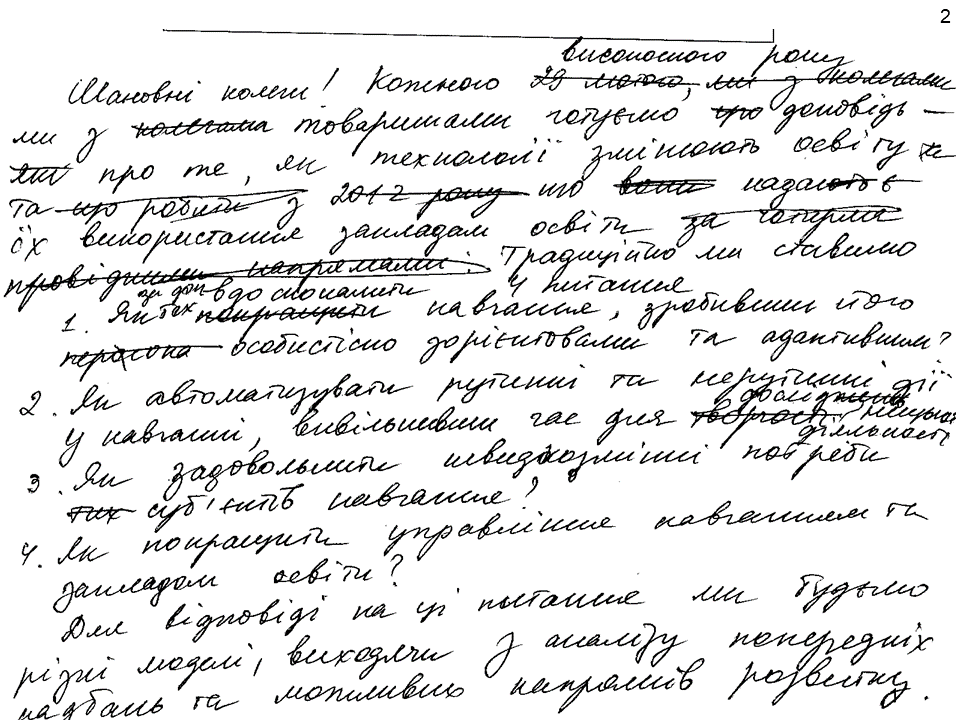 2
високосного року
Шановні колеги! Кожного 29 лютого, ми з колегами
ми з колегами товаришами готуємо про доповідь —
як про те, як технології змінюють освіту
та що робити з 2012 року що вони надають є
їх використання закладам освіти за чотирма
провідними напрямами: Традиційно ми ставимо
4 питання
за доп вдосконалити
1. Як тех покращити навчання, зробивши його
персона особистісно зорієнтованим та адаптивним?
2. Як автоматизувати рутинні та нерутинні дії
дослідницької
у навчанні, вивільнивши час для творчості?
діяльності
3. Як задовольнити швидкозмінні потреби
тих суб'єктів навчання?
4. Як покращити управління навчанням та
закладом освіти?
Для відповіді на ці питання ми будуємо
різні моделі, виходячи з аналізу попередніх
надбань та можливих напрямів розвитку.